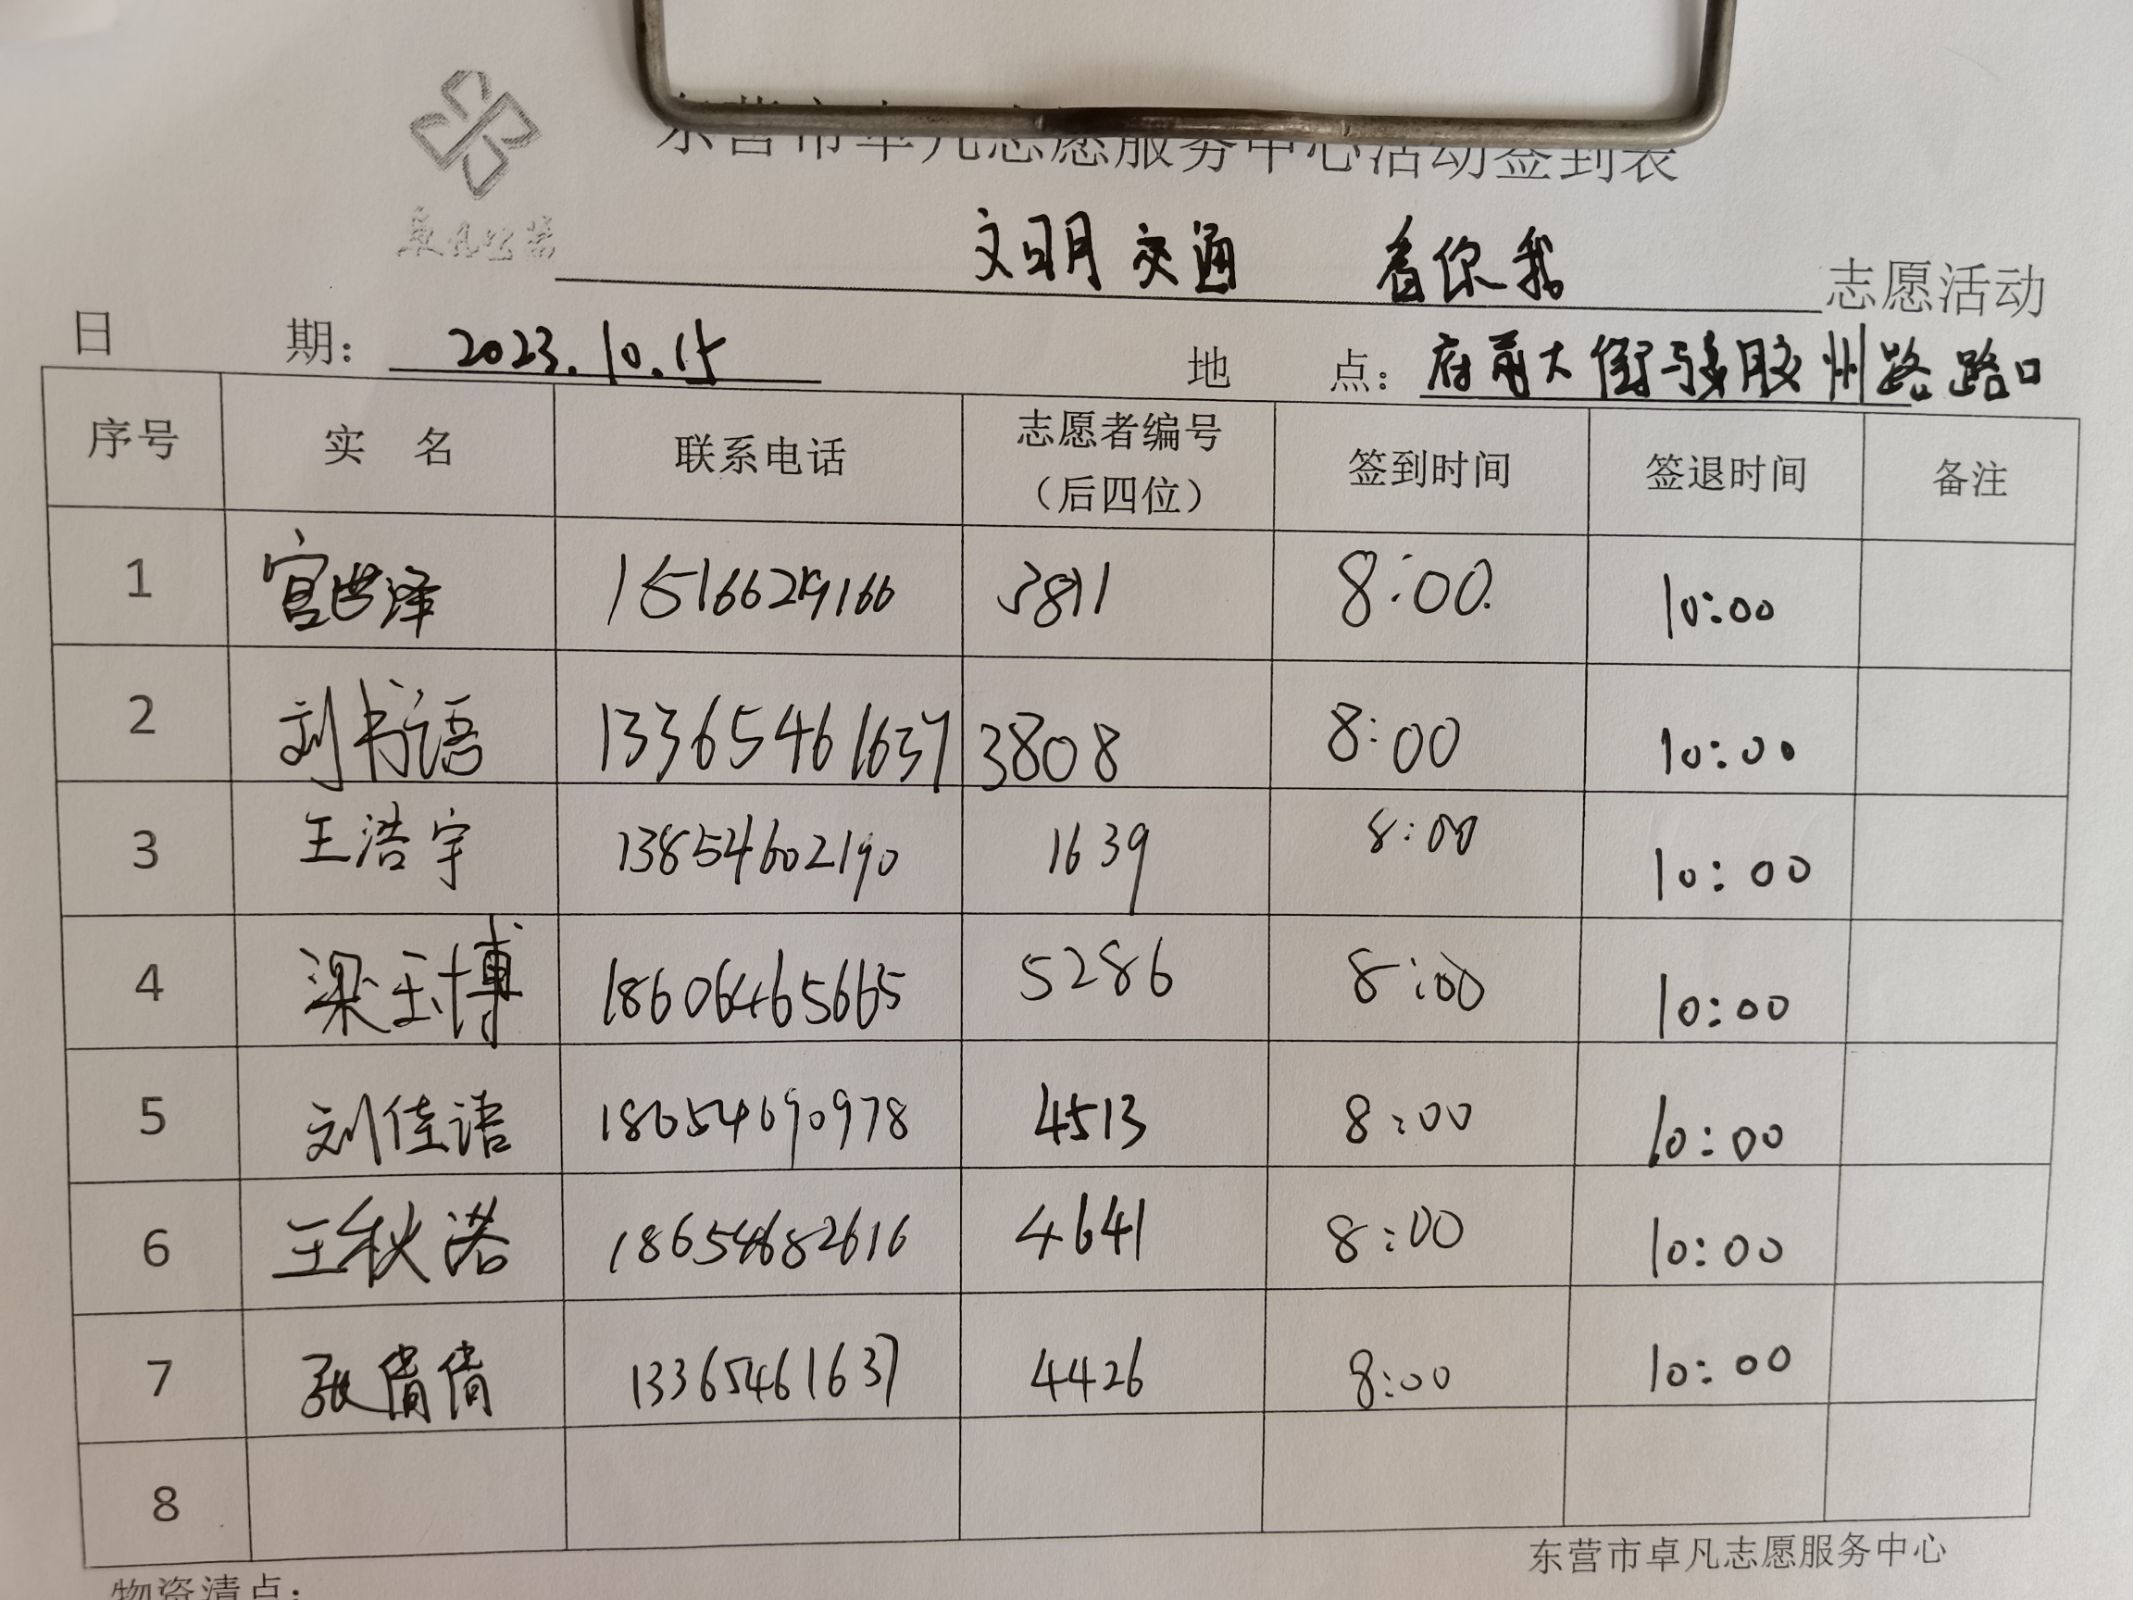 东营市卓凡志愿服务中心活动签到表
卓凡公益
文明交通 看你我 志愿活动
日 期： 2023.10.15 地 点： 府前大街与胶州路路口
序号 实 名 联系电话 志愿者编号（后四位） 签到时间 签退时间 备注
1 宫世泽 3811 8:00 10:00
2 刘书语 13365461637 3808 8:00 10:00
3 王浩宇 13854602190 1639 8:00 10:00
4 梁玉博 18606465665 5286 8:00 10:00
5 刘佳语 18654690978 4513 8:00 10:00
6 王秋诺 18654682616 4641 8:00 10:00
7 张倩倩 13365461637 4426 8:00 10:00
8
东营市卓凡志愿服务中心
物资清点：